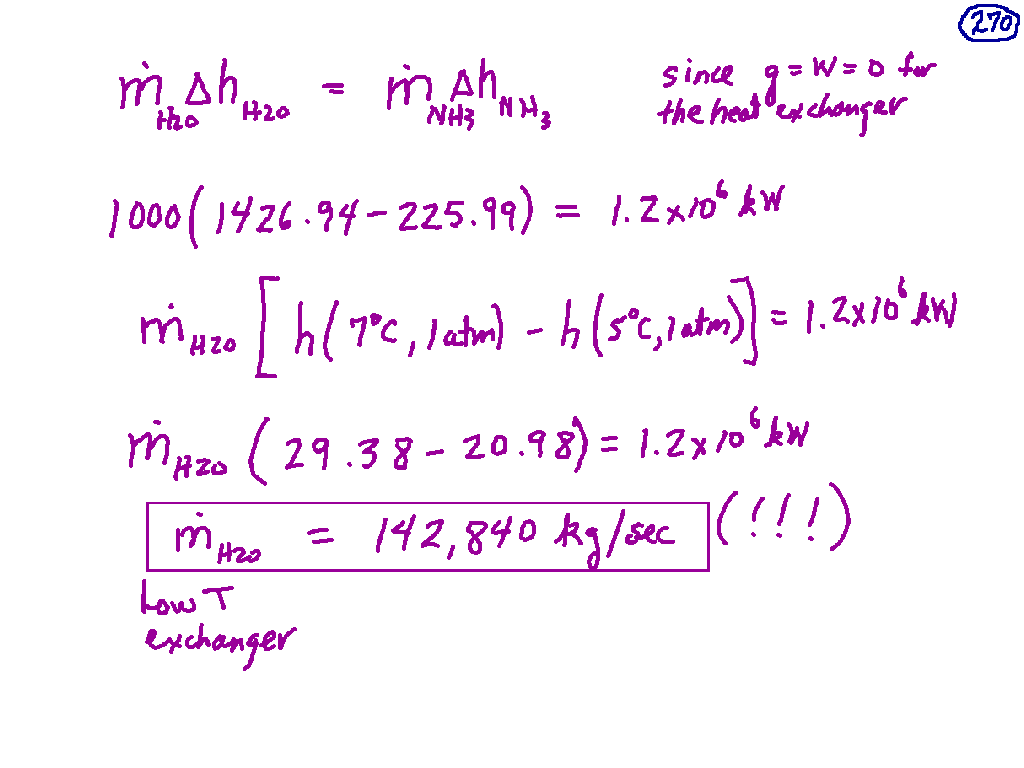 270
ṁ_H2O Δh_H2O = ṁ_NH3 Δh_NH3 since q = W = 0 for
the heat exchanger
1000(1426.94 - 225.99) = 1.2x10^6 kW
ṁ_H2O [h(7°C, 1atm) - h(5°C, 1atm)] = 1.2x10^6 kW
ṁ_H2O (29.38 - 20.98) = 1.2x10^6 kW
ṁ_H2O = 142,840 kg/sec (!!!)
Low T
exchanger